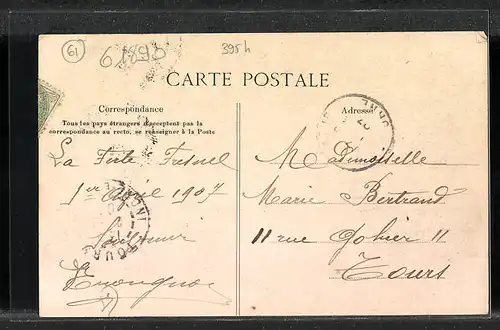 61
61890
395h
CARTE POSTALE
Correspondance
Adresse
Tous les pays étrangers n'acceptent pas la
correspondance au recto, se renseigner à la Poste
La Ferté Fresnel
1er Avril 1907
Souvenir
Mademoiselle
Marie Bertrand
11 rue Gohier 11
Tours